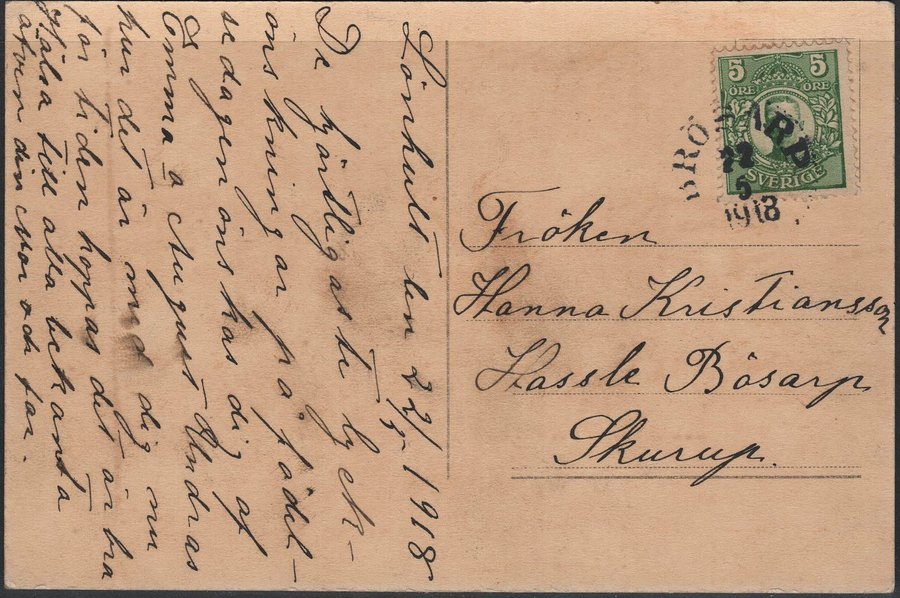 Lönhult den 22/5 1918
De hjärtligaste lyck-
önskningar på födel-
sedagen önskas dig af
Emma o August Undras
hur det är med dig nu
för tiden hoppas det är bra
hälsa till alla bekanta
äfven din Mor och far.
5 5
ÖRE ÖRE
SVERIGE
BRÖ ARP
22
5
1918
Fröken
Hanna Kristiansson
Hassle Bösarp
Skurup.